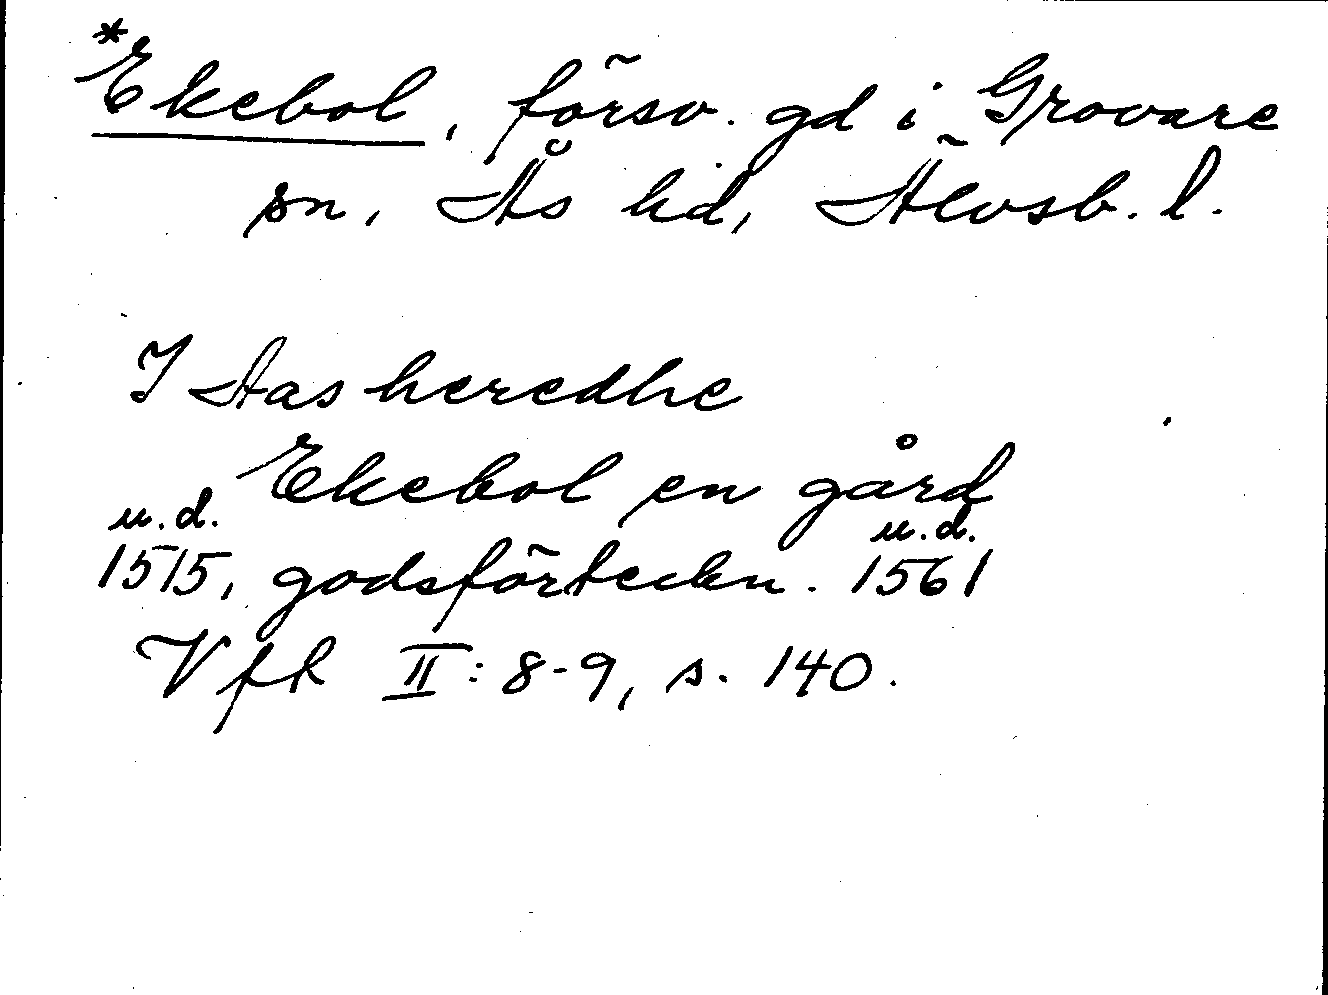 *Ekebol, försv. gd i Grovare
sn, Ås hd, Älvsb. l.
I Aas heredhe
Ekebol en gård
u.d. u.d.
1515, godsförteckn. 1561
Vfh II: 8-9, s. 140.